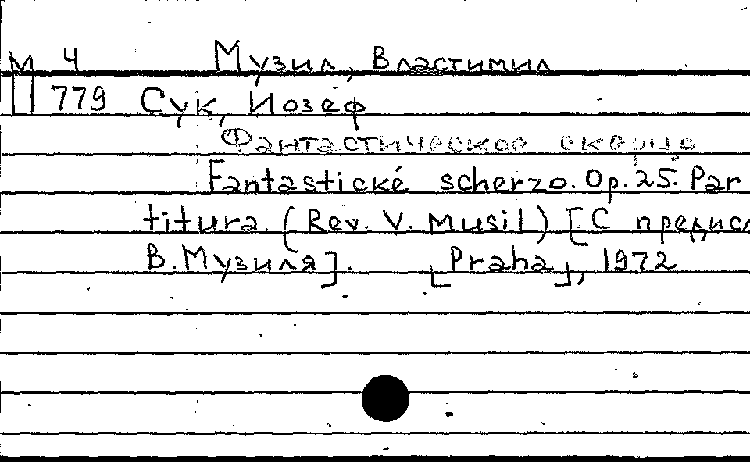 М 4 Музил, Властимил
779 Сук, Йозеф
Фантастическое скерцо
Fantastické scherzo. Op. 25. Par
titura. (Rev. V. Musil) [С предисл
В. Музиля]. [Praha], 1972